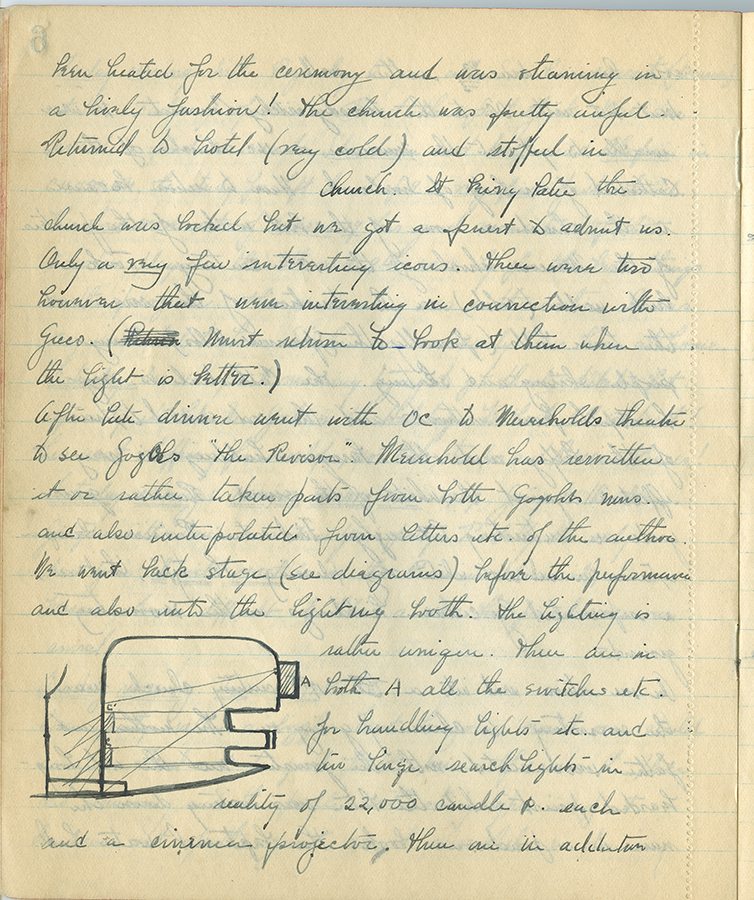 been heated for the ceremony and was steaming in
a lively fashion! The church was pretty awful.
Returned to hotel (very cold) and stopped in
church. At Peiry Patie the
church was locked but we got a priest to admit us.
Only a very few interesting icons. There were two
however that were interesting in connection with
Greco. (Return Must return to look at them when
the light is better.)
After late dinner went with OC to Meierholds theatre
to see Gogols "the Revisor". Meierhold has rewritten
it or rather taken parts from both Gogohls mms.
and also interpolated from letters etc. of the author.
We went back stage (see diagrams) before the performance
and also into the lighting booth. The lighting is
rather unique. There are in
A both A all the switches etc.
for handling lights etc. and
two large searchlights in
reality of 22,000 candle p. each
and a cinema projector. There are in addition